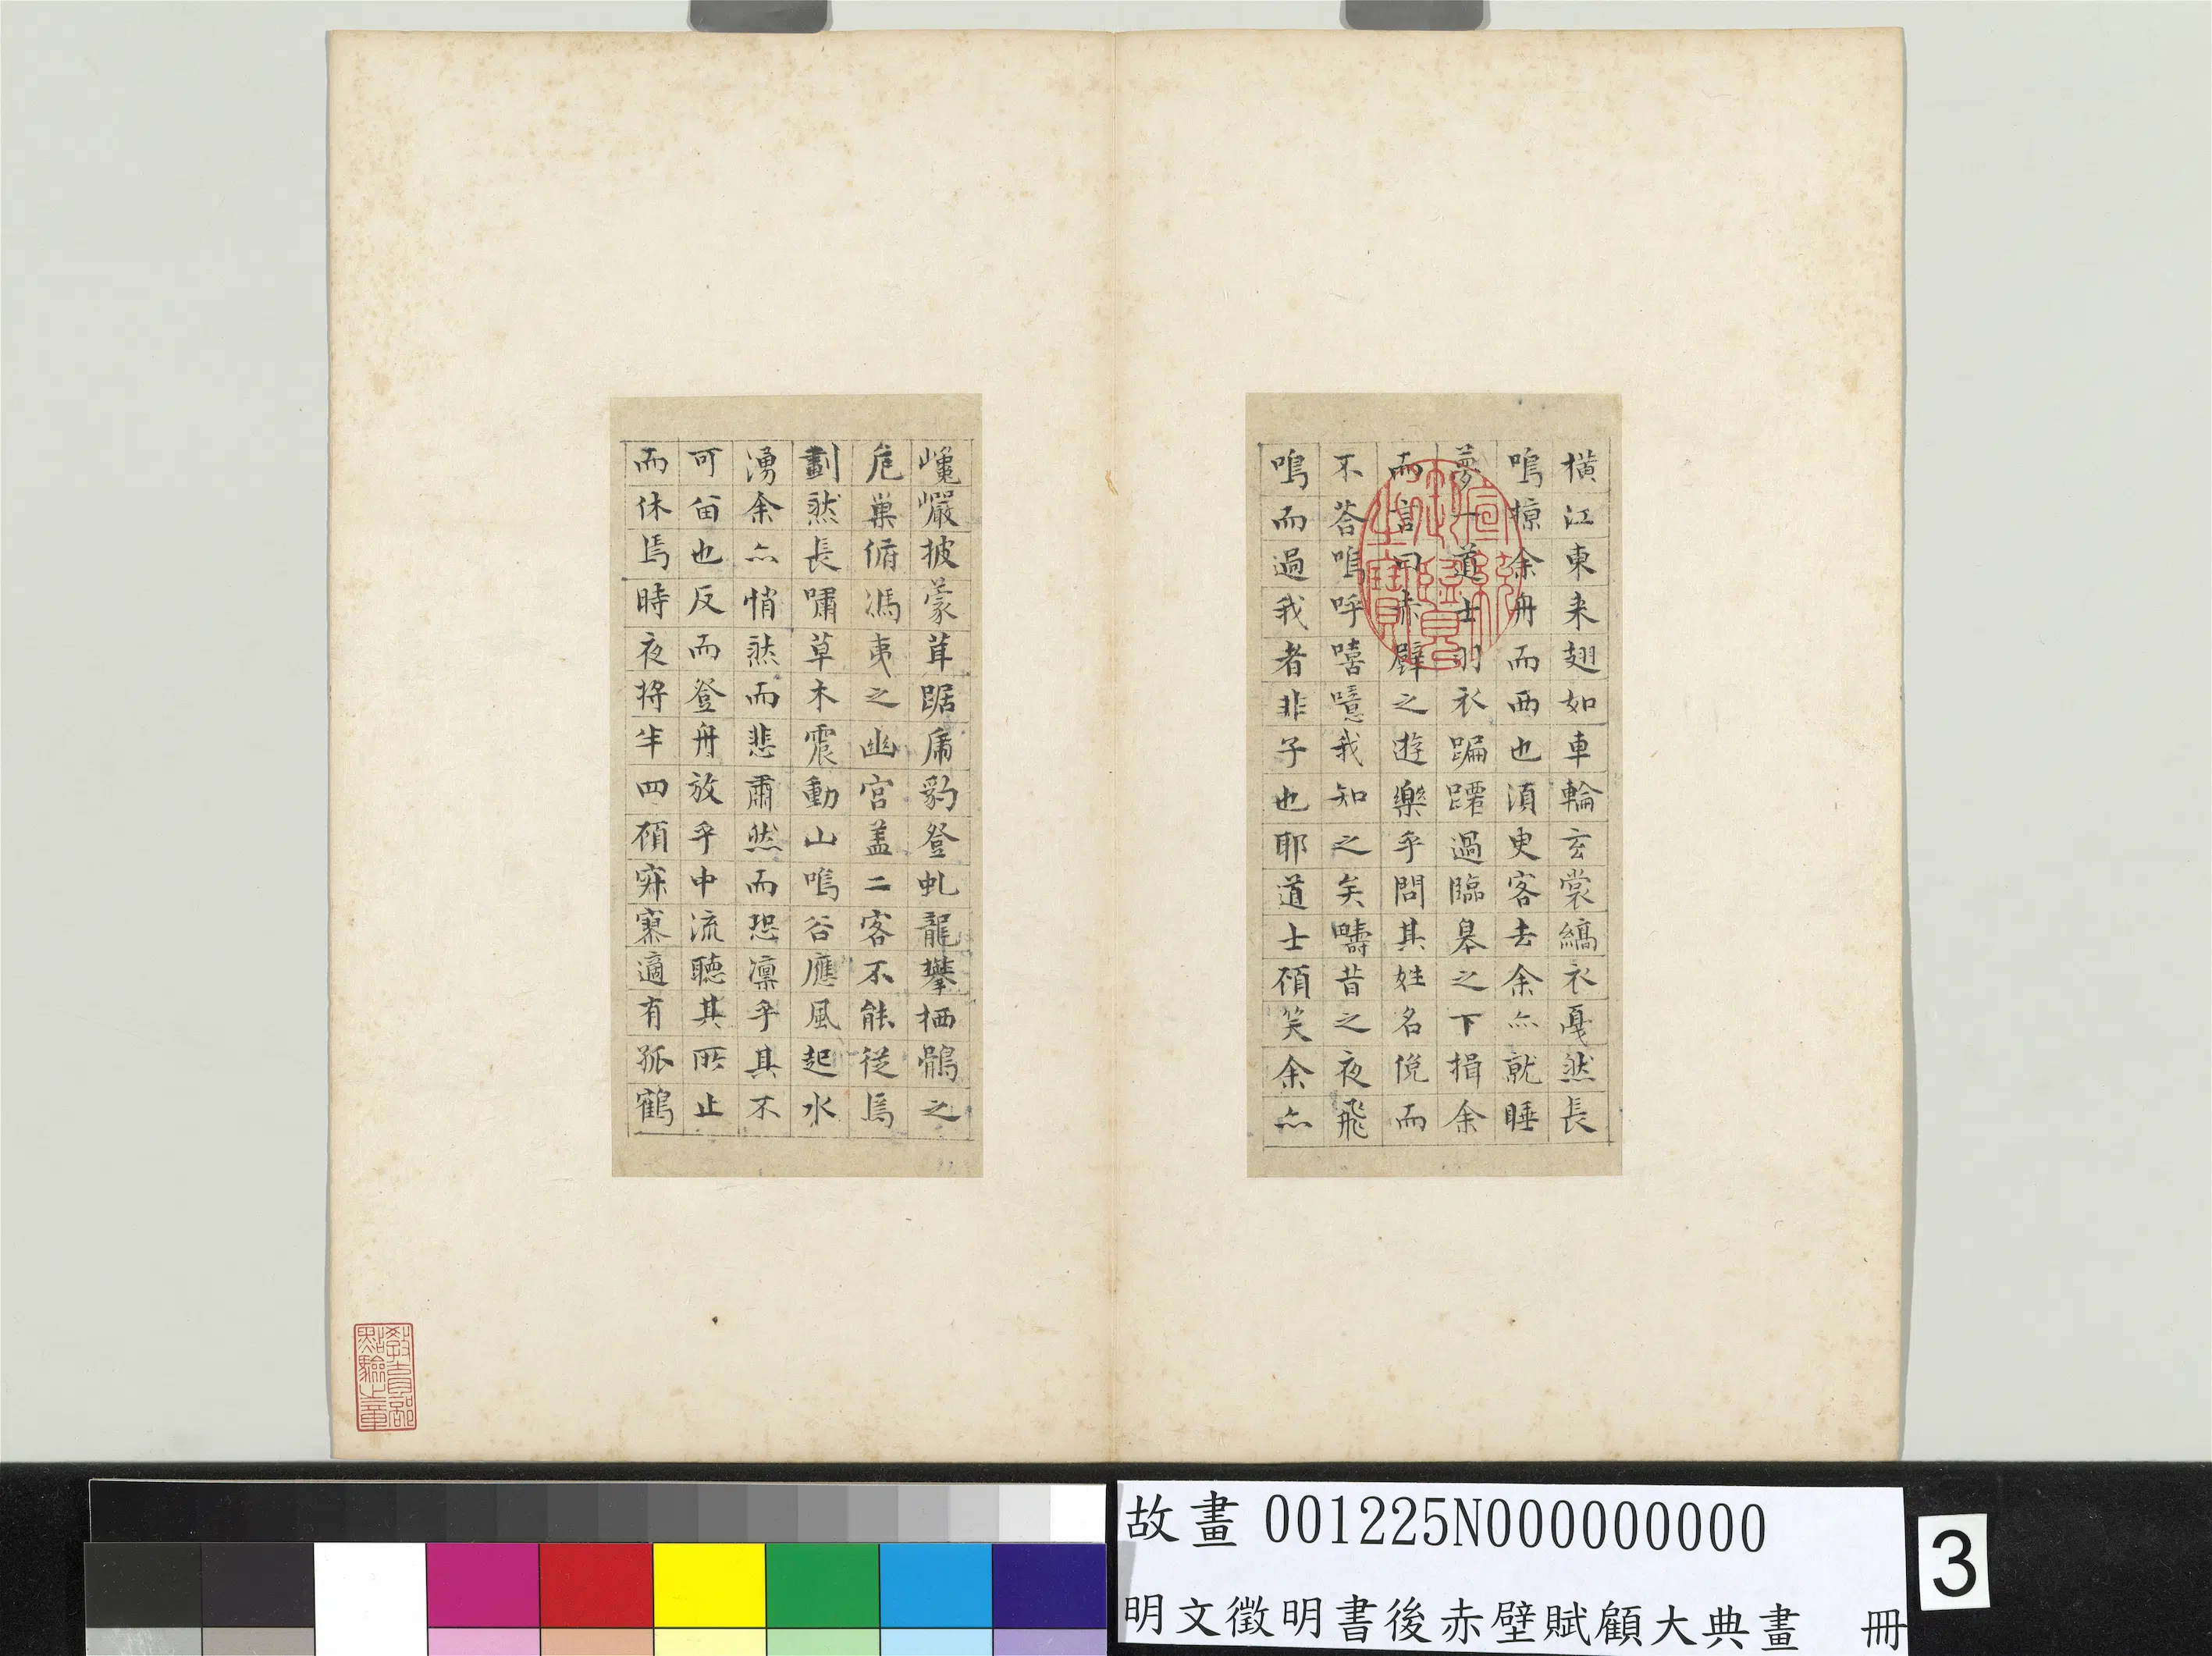 巉巖披蒙茸踞虎豹登虬龍攀栖鶻之
危巢俯馮夷之幽宮盖二客不能從焉
劃然長嘯草木震動山鳴谷應風起水
湧余亦悄然而悲肅然而恐凛乎其不
可留也反而登舟放乎中流聽其所止
而休焉時夜將半四顧寂寥適有孤鶴
橫江東来翅如車輪玄裳縞衣戛然長
鳴掠余舟而西也須臾客去余亦就睡
夢一道士羽衣蹁躚過臨皋之下揖余
而言曰赤壁之遊樂乎問其姓名俛而
不答嗚呼嘻噫我知之矣疇昔之夜飛
鳴而過我者非子也耶道士顧笑余亦
宣統御覽之寶
教育部點驗之章
故畫 001225N000000000
明文徵明書後赤壁賦顧大典畫 冊
3